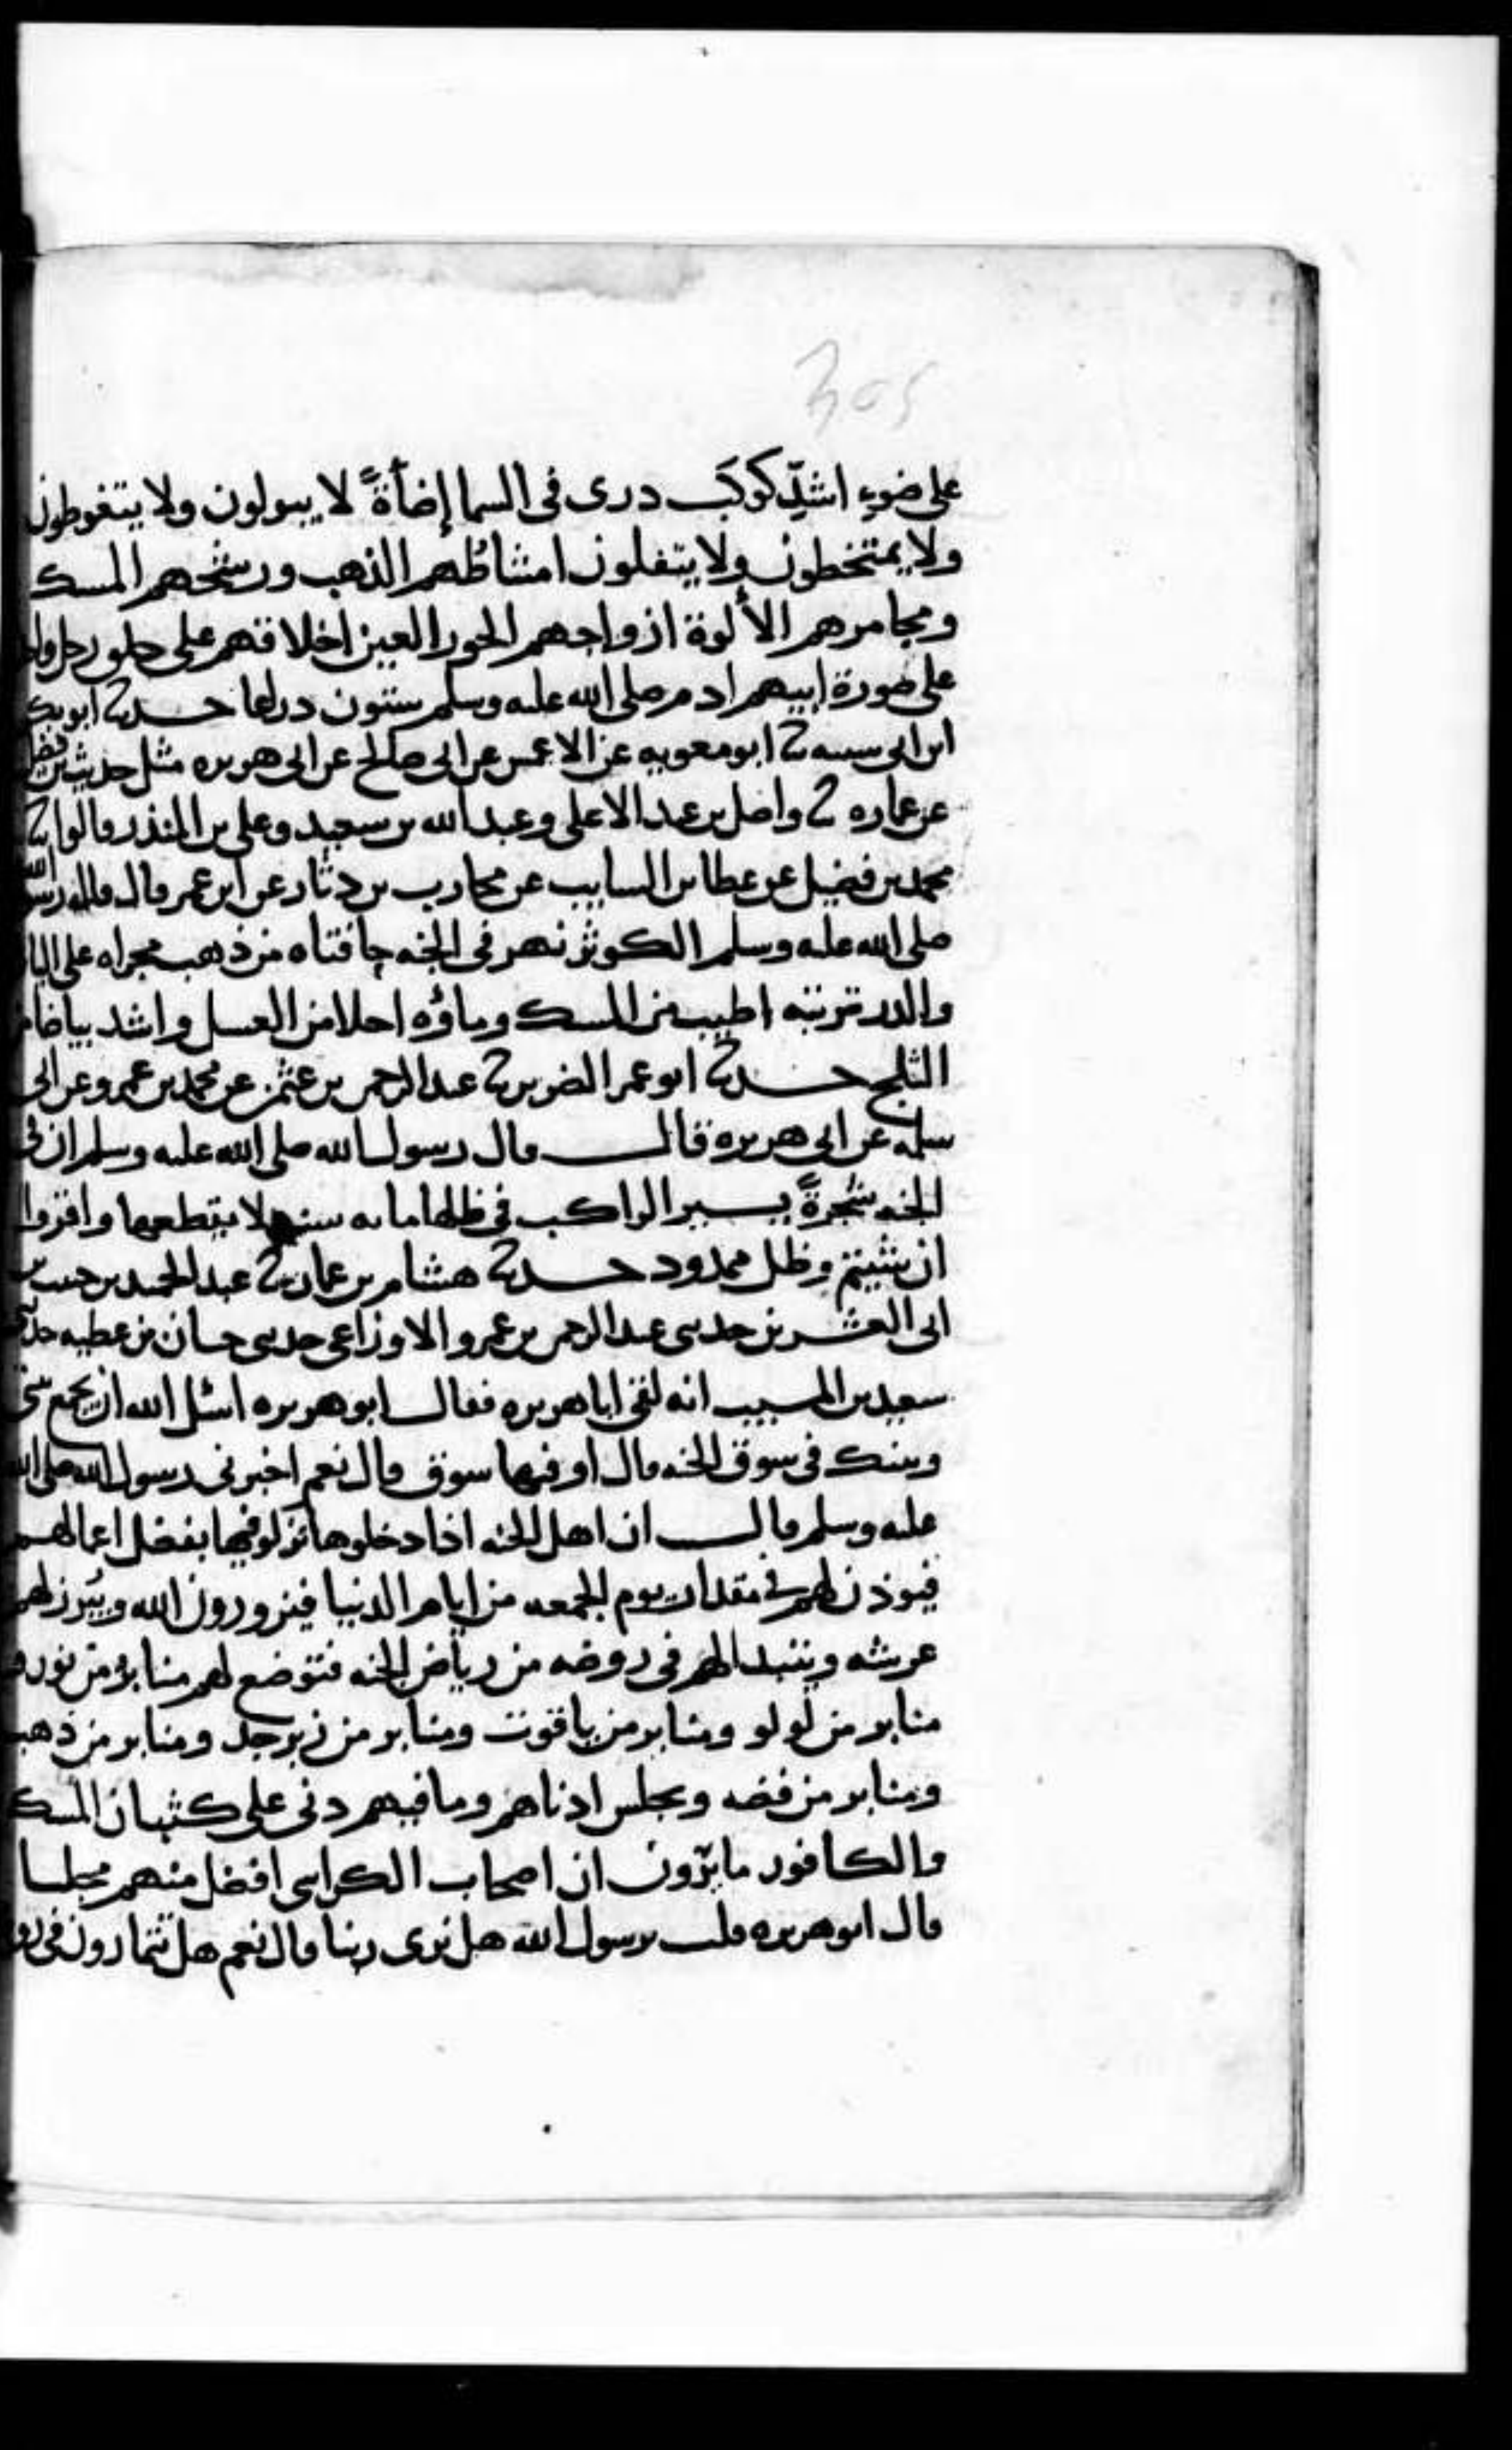 305
على ضوء اشدّ كوكَب درى فى السما إضأةً لا يبولون ولا يتغوطون
ولا يمتخطون ولا يتفلون امشاطُهم الذهب ورشحهم المسك
ومجامرهم الألوة ازواجهم الحور العين اخلاقهم على خلق رجل
على صورة ابيهم ادم صلى الله عليه وسلم ستون دراعا حدثنا ابو بكر
ابن ابى شيبه ثنا ابو معويه عن الاعمش عن ابى صالح عن ابى هريره مثل حديث بن فضيل
عن عماره ثنا واصل بن عبد الاعلى وعبد الله بن سعيد وعلى بن المنذر قالوا ثنا
محمد بن فضيل عن عطا بن السايب عن محارب بن دثار عن ابن عمر قال قال رسول الله
صلى الله عليه وسلم الكوثر نهر فى الجنه حافتاه من ذهب مجراه على
والدر تربته اطيب من المسك وماؤه احلا من العسل واشد بياضا من
الثلج حدثنا ابو عمر الضرير ثنا عبد الرحمن بن عثمن عن محمد بن عمرو عن ابى
سلمه عن ابى هريره قال قال رسول الله صلى الله عليه وسلم ان فى
الجنه شجرةً يسير الراكب فى ظلها مايه سنه لا يقطعها واقروا
ان شيتم وظل ممدود حدثنا هشام بن عمار ثنا عبد الحميد بن حبيب بن
ابى العشرين حدثنى عبد الرحمن بن عمرو الاوزاعى حدثنى حسان بن عطيه حدثنى
سعيد بن المسيب انه لقى ابا هريره فقال ابو هريره اسئل الله ان يجمع بينى
وبينك فى سوق الجنه قال او فيها سوق قال نعم اخبرنى رسول الله صلى الله
عليه وسلم قال ان اهل الجنه اذا دخلوها نزلو فيها بفضل اعمالهم
فيوذن لهم فى مقدار يوم الجمعه من ايام الدنيا فيزورون الله ويُبرز لهم
عرشه ويتبدا لهم فى روضه من رياض الجنه فتوضع لهم منابر من نور و
منابر من لولو ومنابر من ياقوت ومنابر من زبرجد ومنابر من ذهب
ومنابر من فضه ويجلس ادناهم وما فيهم دنى على كثبان المسك
والكافور ما يرون ان اصحاب الكراسى افضل منهم مجلسا
قال ابو هريره قلت يرسول الله هل نرى ربنا قال نعم هل تتمارون فى